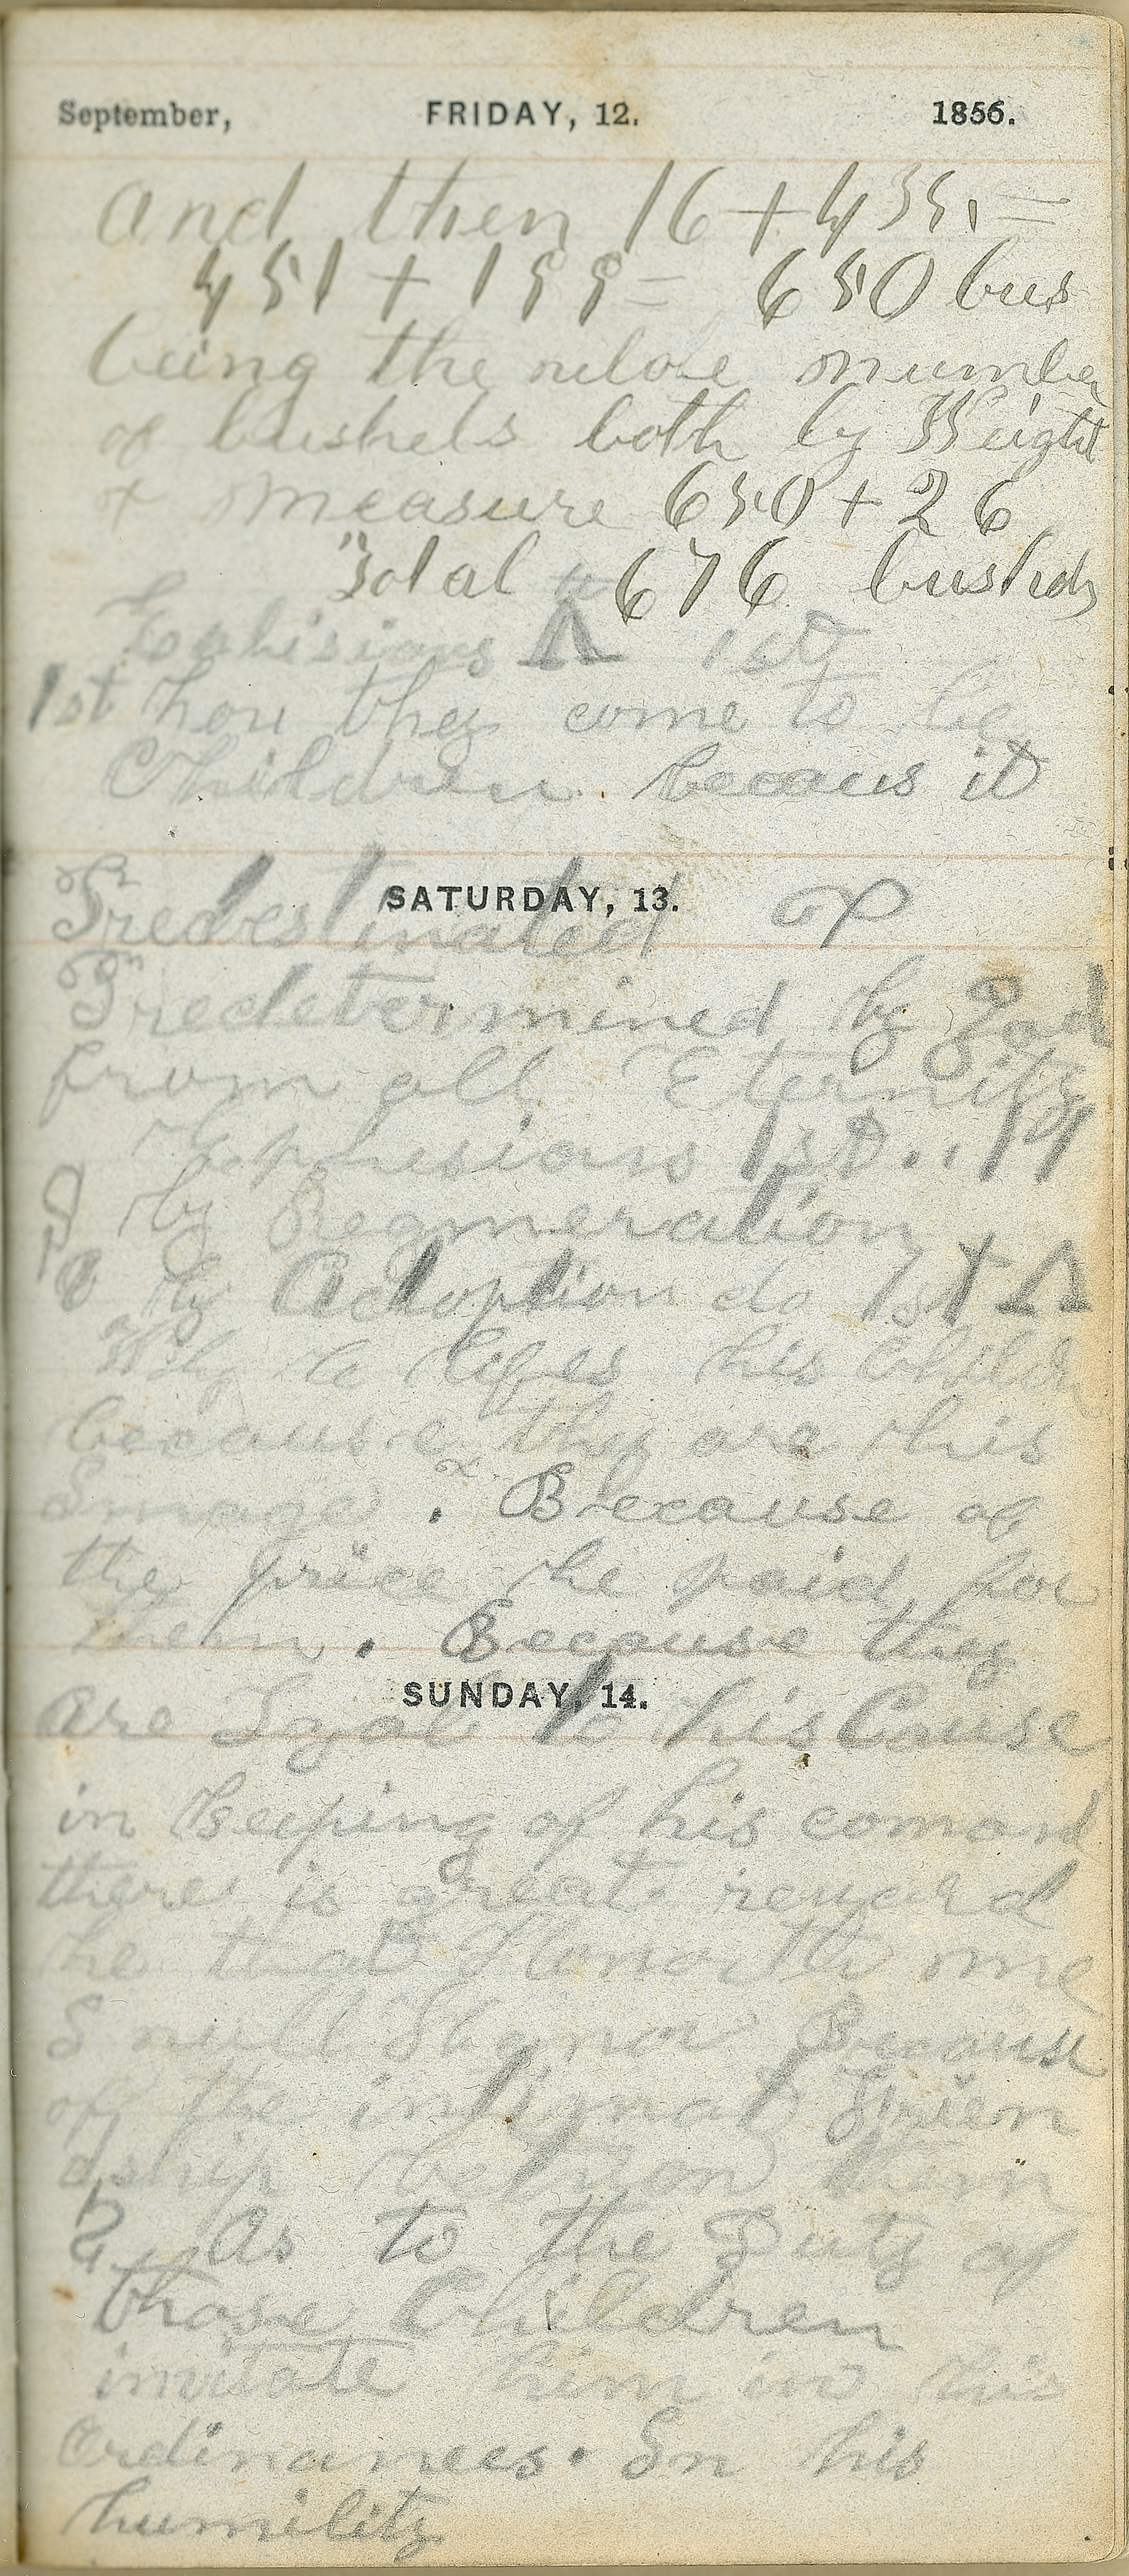 September, FRIDAY, 12. 1856.
and then 16 + 435. =
451 + 199 = 650 bus
being the whole number
of bushels both by Weight
& Measure 650 + 26
Total 676 bushels
Ephisians 1st
1st how they come to be
Children. becaus it
SATURDAY, 13.
Predestinated or
Predetermined by God
from all Eternity
Ephesians 1st..
by Regeneration
by Adoption do 1st
Why he his Childn
because they are his
Image. & Because of
the price he paid for
them. Because they
SUNDAY, 14.
are Loyal to his Cause
in keeping of his comand
there is great reward
he that Honoreth me
I will Honor Because
of the intimat frien
dship betwen them
2 As to the Duty of
those Children
imitate him in his
Ordinances. In his
humility